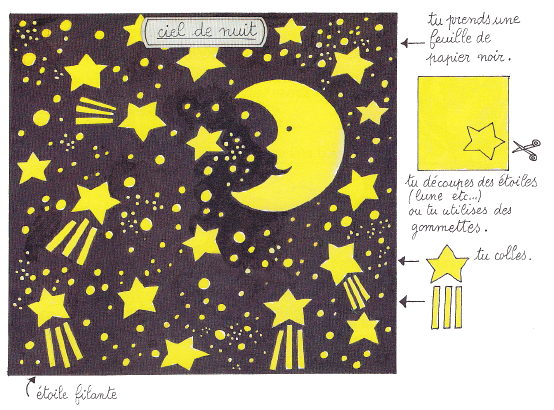 ciel de nuit
tu prends une
feuille de
papier noir.
tu découpes des étoiles
(lune etc...)
ou tu utilises des
gommettes.
tu colles.
étoile filante